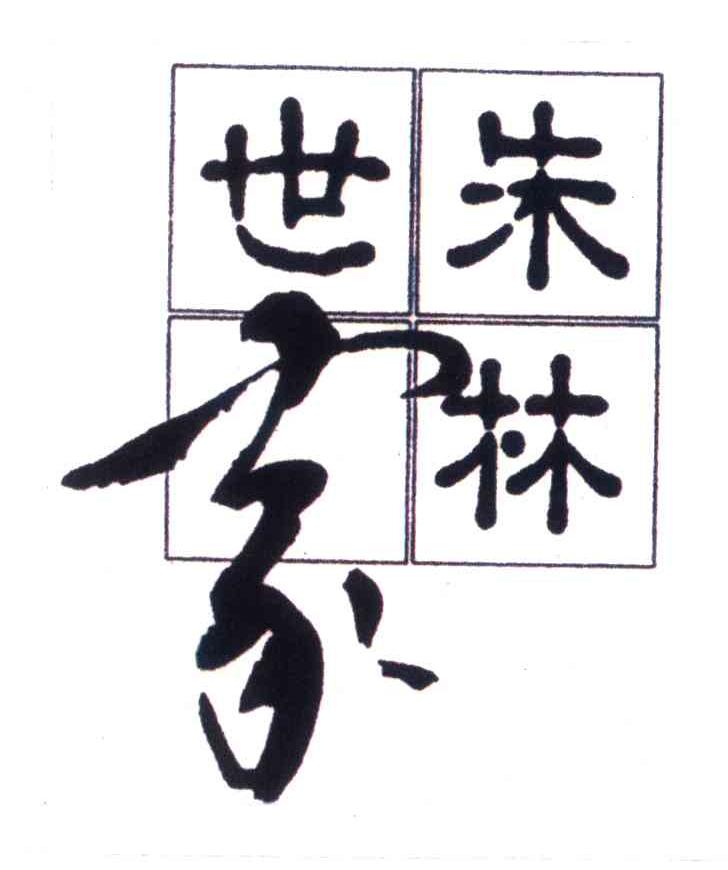 朱林
世家